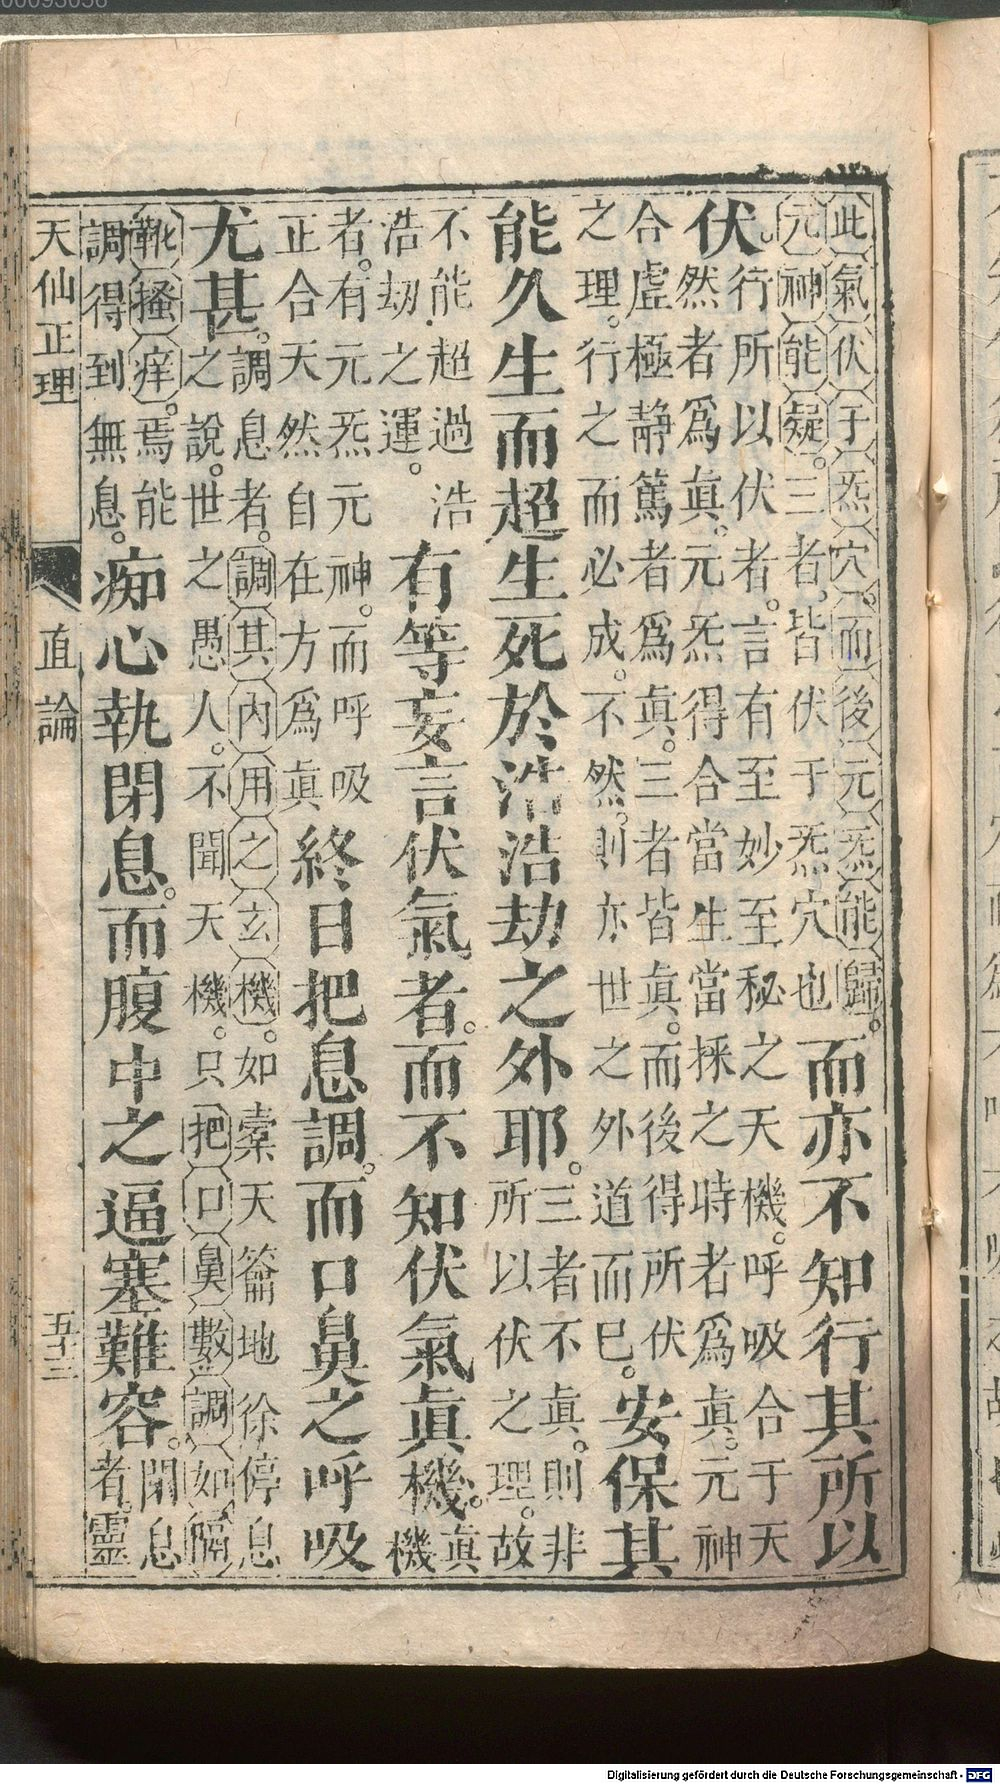 此氣伏于炁穴。而後元炁能歸。
元神能疑。三者皆伏于炁穴也
而亦不知行其所以
伏。
行所以伏者。言有至妙至秘之天機。呼吸合于天
然者爲眞。元炁得合當生當採之時者爲眞。元神
合虛極靜篤者爲眞。三者皆眞。而後得所伏
之理。行之而必成。不然。則亦世之外道而已。
安保其
能久生而超生死於浩浩劫之外耶。
三者不眞。則非
所以伏之理。故
不能超過浩
浩劫之運。
有等妄言伏氣者。而不知伏氣眞機。
眞
機
者。有元炁元神。而呼吸
正合天然自在方爲眞
終日把息調。而口鼻之呼吸
尤甚。
調息者。調其內用之玄機。如橐天籥地徐停息
之說。世之愚人。不聞天機。只把口鼻數調如隔
靴搔痒。焉能
調得到無息。
痴心執閉息。而腹中之逼塞難容。
閉息
者。靈
天仙正理
直論
五十三
00093056
Digitalisierung gefördert durch die Deutsche Forschungsgemeinschaft - DFG